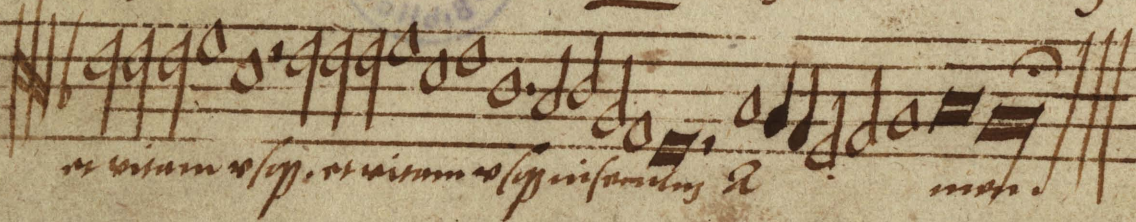 et vitam vsqȝ. et vitam vsqȝ in seculum A men.